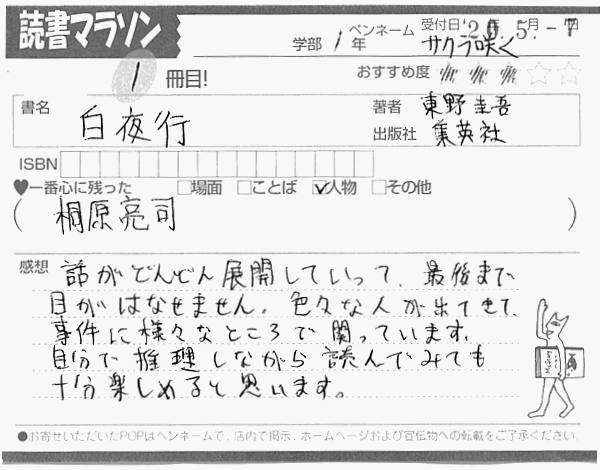 読書マラソン
学部 1年 ペンネーム サクラ咲く
受付日 '20.5.-7
1冊目!
おすすめ度
書名 白夜行
著者 東野圭吾
出版社 集英社
ISBN
♥一番心に残った □場面 □ことば ☑人物 □その他
(桐原亮司)
感想 話がどんどん展開していって、最後まで
目がはなせません。色々な人が出てきて、
事件に様々なところで関っています。
自分で推理しながら読んでみても
十分楽しめると思います。
●お寄せいただいたPOPはペンネームで、店内で掲示、ホームページおよび宣伝物への転載をご了承ください。